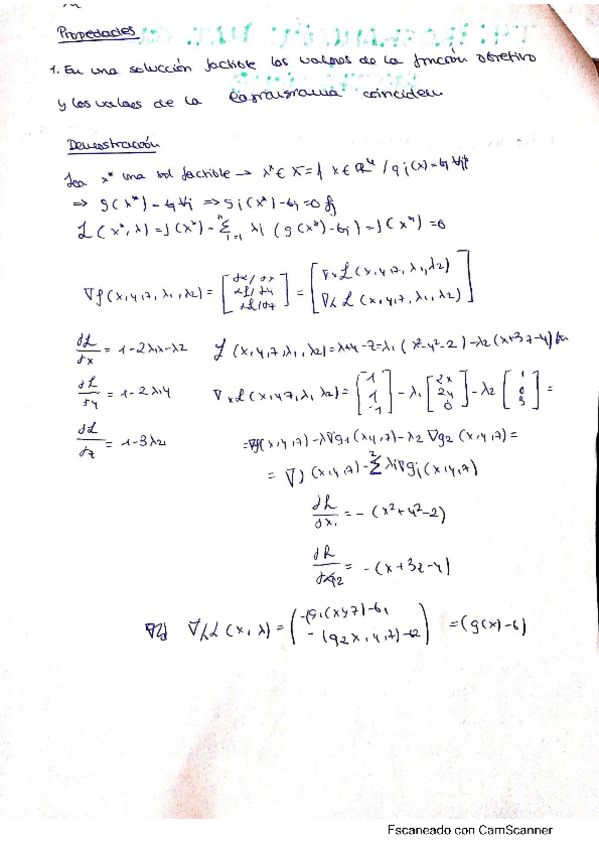 Propiedades
1. En una solución factible los valores de la función objetivo
y los valores de la coinciden
Demostración
Sea x* una sol factible → x* ∈ X = { x ∈ R / gi(x) =
=> g(x*) = => gi(x*) - bi = 0 ∀j
L(x*, λ) = f(x*) - Σ λi (g(x*) - bi) = f(x*) = 0
∇f(x,y,z,λ1,λ2) = [dL/dx dL/dy dL/dz] = [∇xL(x,y,z,λ1,λ2) ∇λL(x,y,z,λ1,λ2)]
dL/dx = 1-2λ1x-λ2 L(x,y,z,λ1,λ2) = x+y-z-λ1(x²-y²-2)-λ2(x+3z-4)
dL/dy = 1-2λ1y ∇xL(x,y,z,λ1,λ2) = [1 1 -1] - λ1 [2x 2y 0] - λ2 [1 0 3] =
dL/dz = 1-3λ2 = ∇f(x,y,z)-λ∇g1(x,y,z)-λ2∇g2(x,y,z) =
= ∇f(x,y,z) - Σ λi∇gi(x,y,z)
= -(x²+y²-2)
= -(x+3z-4)
∇λL(x,λ) = (-(g1(xyz)-b1 -(g2x,y,z)-b2) = (g(x)-b)
Escaneado con CamScanner